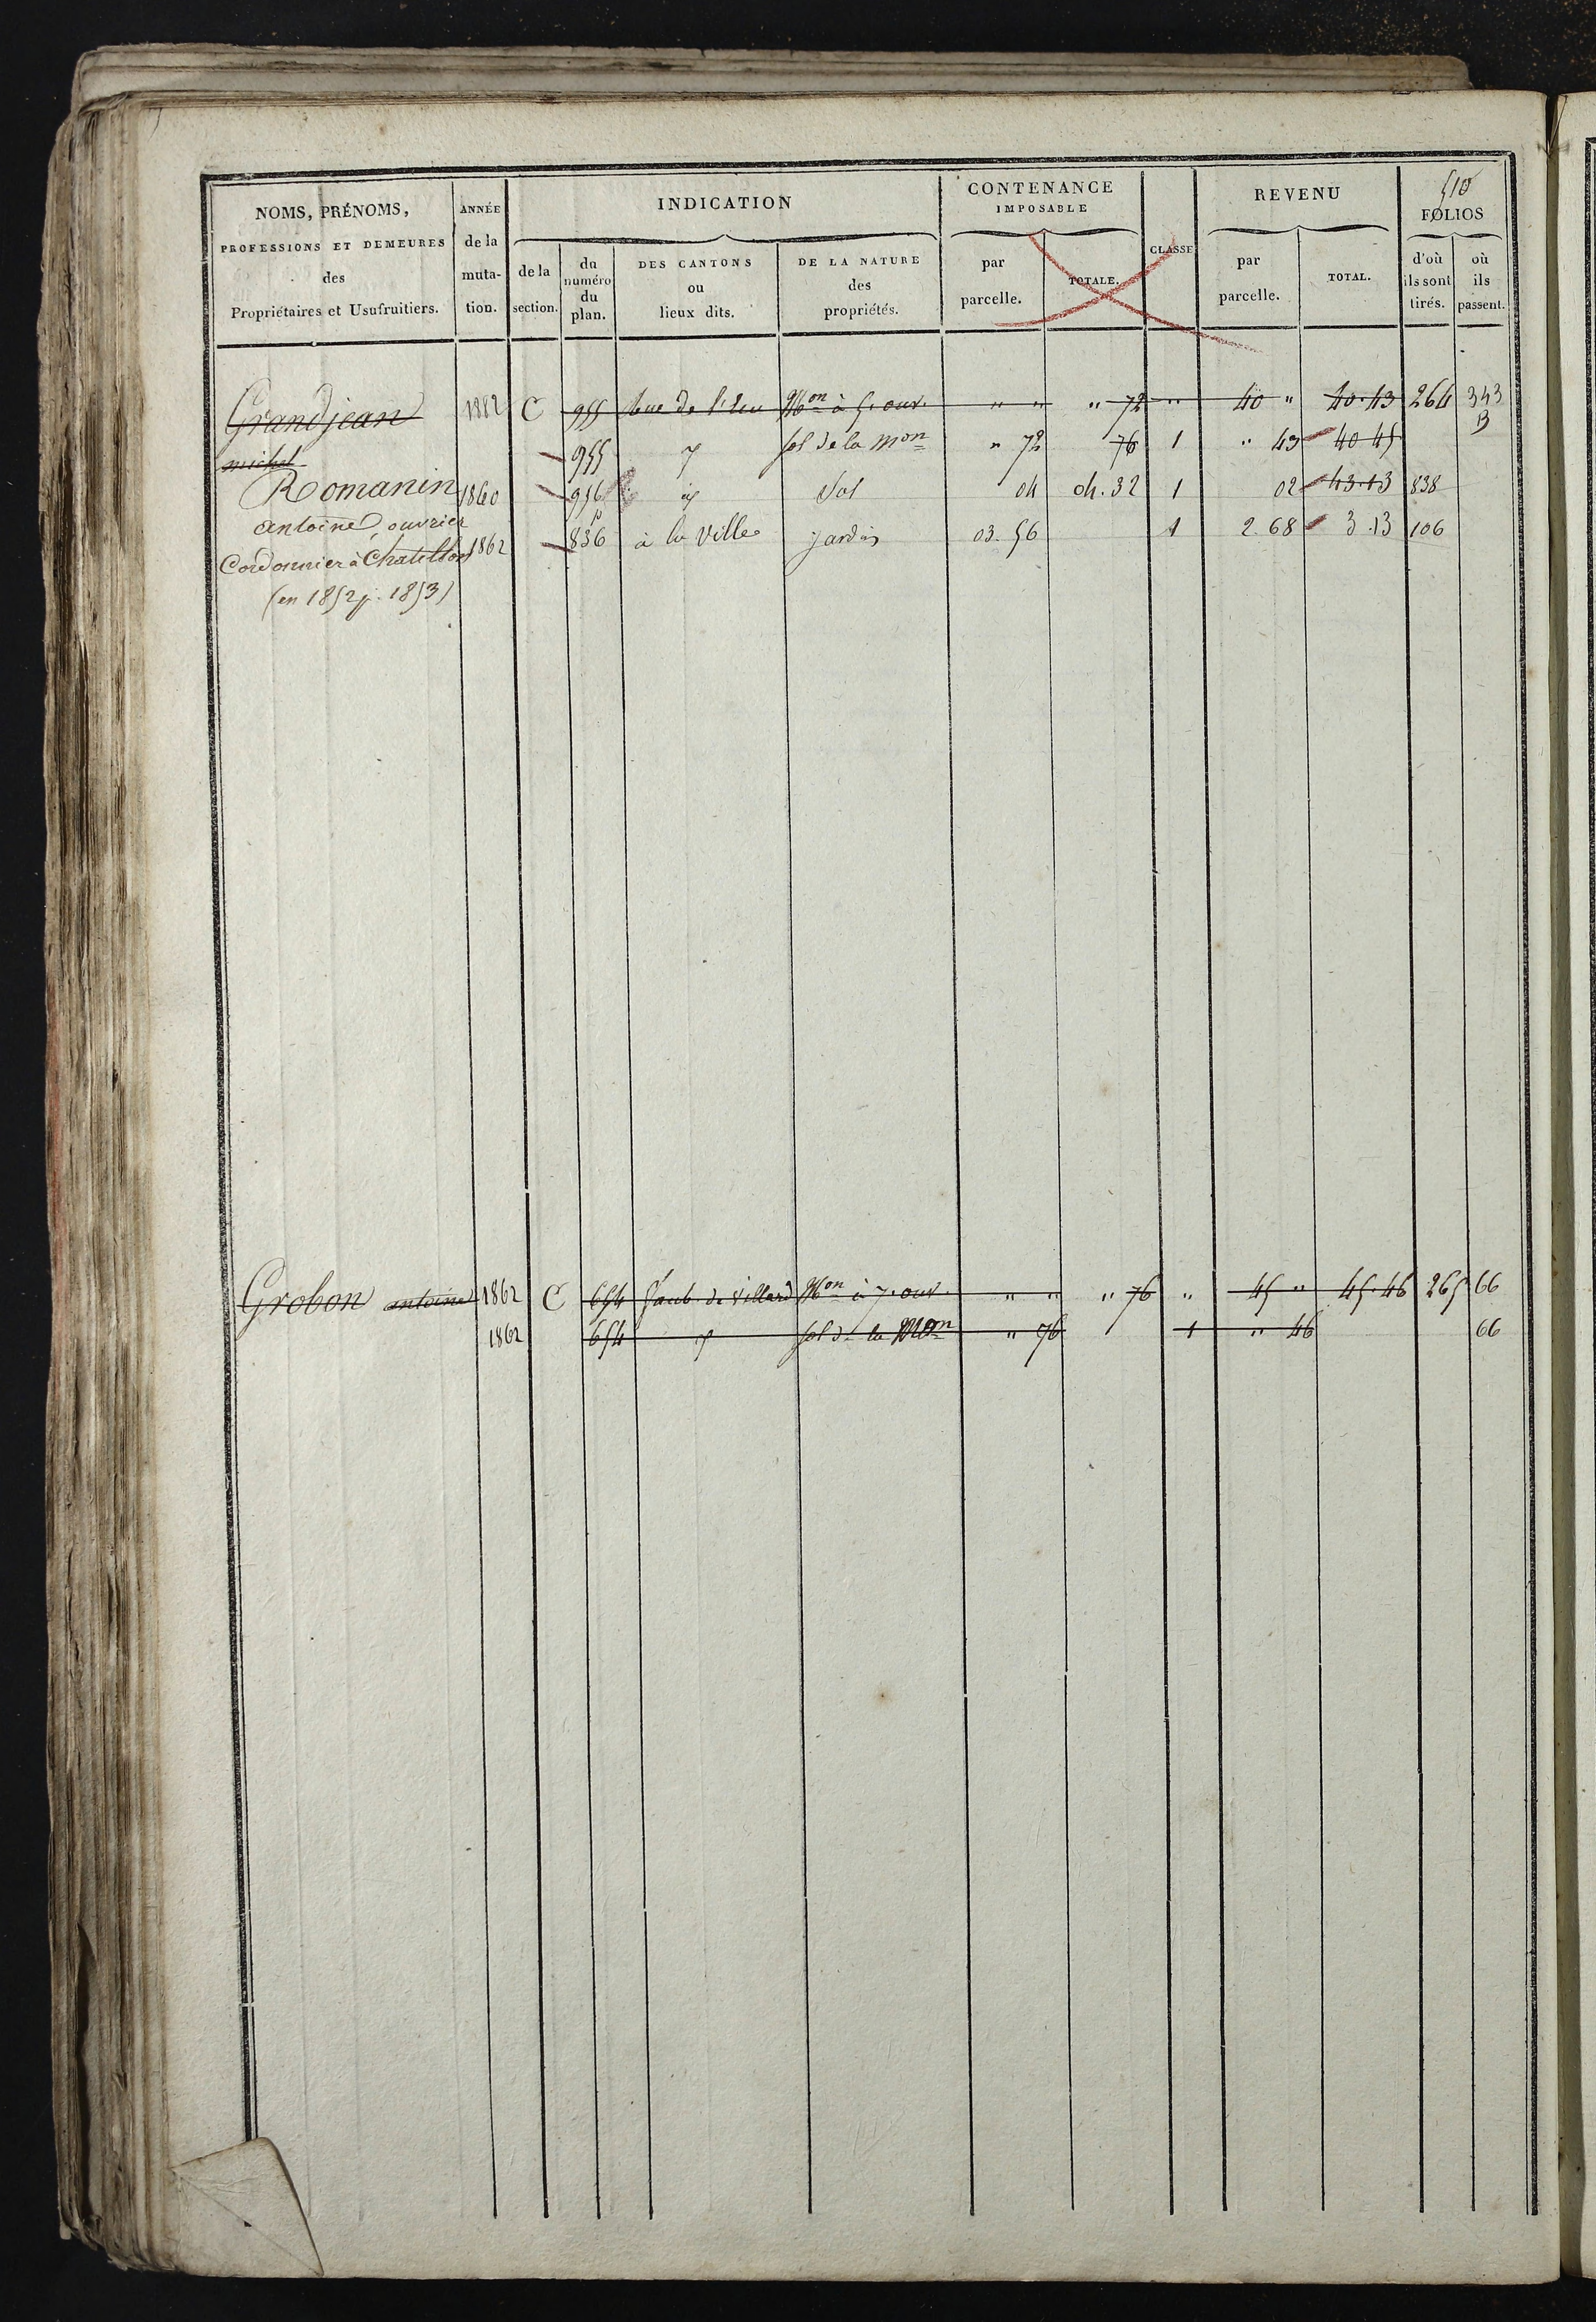 510
NOMS, PRÉNOMS, PROFESSIONS ET DEMEURES des Propriétaires et Usufruitiers.
ANNÉE de la muta- tion.
INDICATION
de la section.
du numéro du plan.
DES CANTONS ou lieux dits.
DE LA NATURE des propriétés.
CONTENANCE IMPOSABLE
par parcelle.
TOTALE.
CLASSE
REVENU
par parcelle.
TOTAL.
FOLIOS
d'où ils sont tirés.
où ils passent.
Grandjean 1882 C 955 Mon à 5. ouv. " " " 72 " 40 " 40.13 264 343
michel 955 sol de la Mon " 72 76 1 " 43 40 45 B
Romanin 1860 956 Sol 04 04.32 1 02 43.13 838
antoine, ouvrier
Cordonnier à Chatillon 1862 836 p à la Ville jardin 03.56 1 2.68 3.13 106
(en 1852 p. 1853)
Grobon antoine 1862 C 654 faub. de Villard Mon à 7. ouv. " " " 76 " 45 " 45.46 265 66
1862 654 sol de la Mon " 76 1 " 46 66